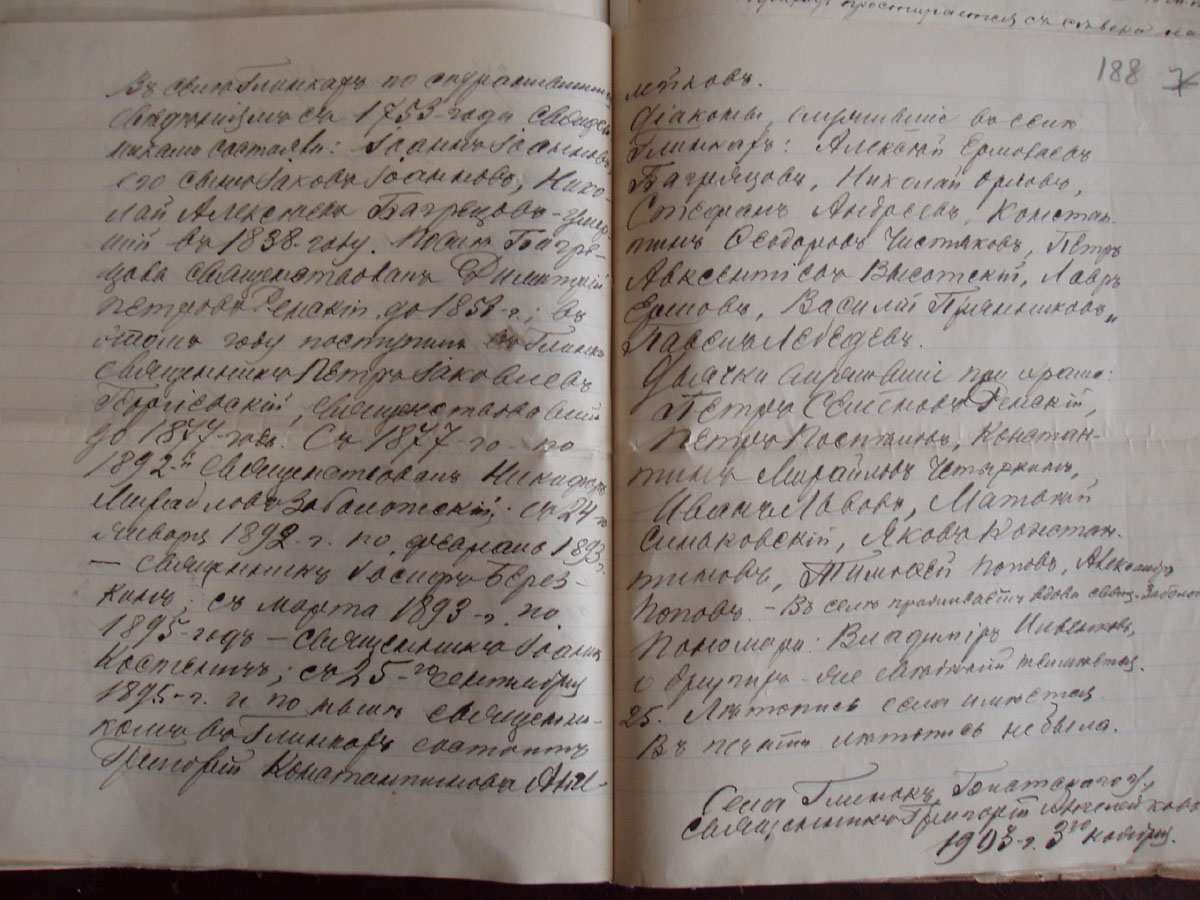 природ простирается съ севера на
188
Въ селе Глинкахъ по справочнымъ
сведенiямъ съ 1753 года священ
никами состояли: Iоаннъ Iоанновъ,
его сынъ Iаковъ Iоанновъ, Нико-
лай Алексѣевъ Багрецовъ - умер-
шiй въ 1838 году. После Багре-
цова священствовалъ Димитрiй
Петровъ Ренскiй до 1856 г.; въ
этомъ году поступилъ въ Глинки
священникъ Петръ Iаковлевъ
Георгiевскiй, священствовавшiй
до 1877 года. Съ 1877-го по
1892-й священствовалъ Никифоръ
Михайловъ Заболотскiй; съ 24-го
Января 1892 г. по февраль 1893 г.
— священникъ Iосифъ Берез-
кинъ; съ марта 1893 г. по
1895 годъ — священникъ Iоаннъ
Костевичъ; съ 25-го Сентября
1895 г. и по ныне священни-
комъ въ Глинкахъ состоитъ
Григорiй Константиновъ Анге-
лейковъ.
Дiаконы служившiе въ селе
Глинкахъ: Алексѣй Ермолаевъ
Багрянцовъ, Николай Орловъ,
Стефанъ Андреевъ, Констан-
тинъ Ѳеодоровъ Чистяковъ, Петръ
Авксентiевъ Высотскiй, Лавръ
Ермовъ, Василiй Прянишниковъ,
Павелъ Лебедевъ.
Дьячки служившiе при храме:
Петръ Семеновъ Ренскiй,
Петръ Константин
Михайловъ Четыркинъ,
Иванъ Львовъ, Матвѣй
Синьковскiй, Яковъ Констан-
тиновъ, Тимоѳей Поповъ, Александръ
Поповъ. - Въ селе проживаетъ вдова свящ. Заболот
Пономари: Владимiръ Ивенковъ,
о другихъ - же сведенiй не имеется.
25. Летопись села имеется.
Въ печати летопись не была.
Села Глинокъ, у.,
священникъ Григорiй Ангелейковъ
1903 г. 3го Ноября.